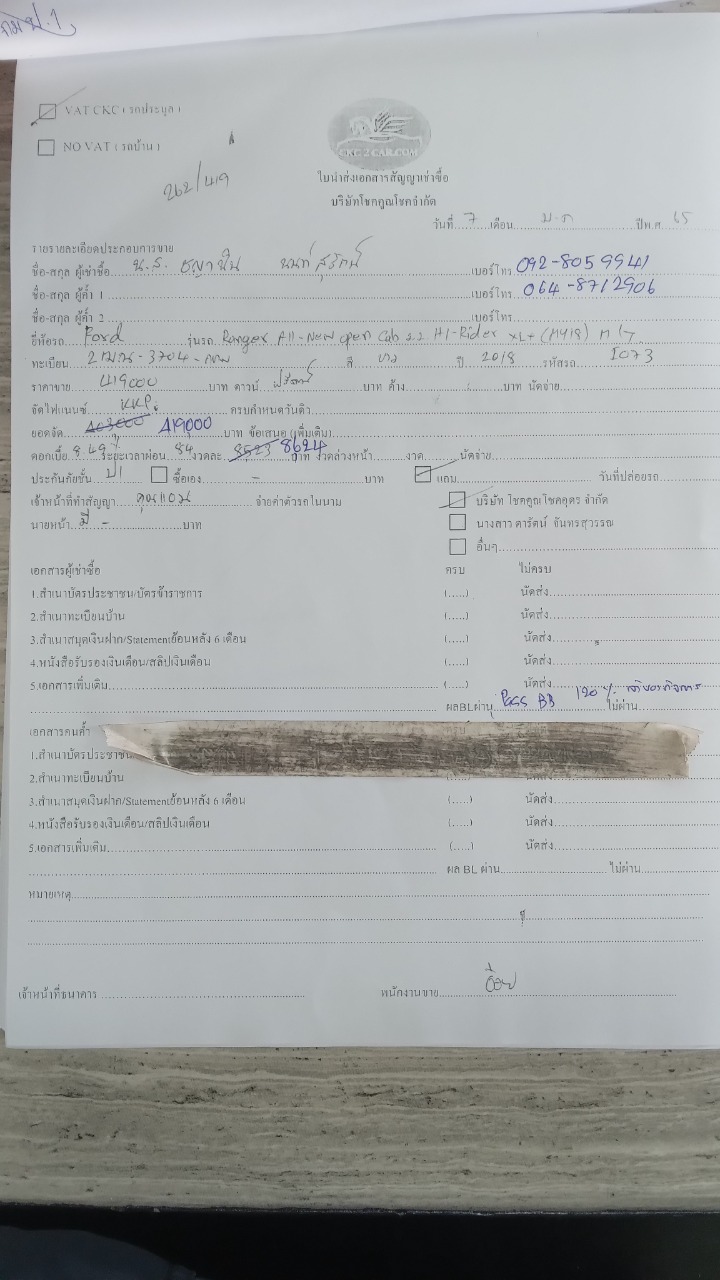 VAT CKC ( รถประมูล )
NO VAT ( รถบ้าน )
262/419
CKC 2 CAR.COM
ใบนำส่งเอกสารสัญญาเช่าซื้อ
บริษัทโชคคูณโชคจำกัด
วันที่ 7 เดือน ม.ค ปีพ.ศ 65
รายรายละเอียดประกอบการขาย
ชื่อ-สกุล ผู้เช่าซื้อ น.ส. เบอร์โทร 092-8059941
ชื่อ-สกุล ผู้ค้ำ 1 เบอร์โทร 064-8712906
ชื่อ-สกุล ผู้ค้ำ 2 เบอร์โทร
ยี่ห้อรถ Ford รุ่นรถ Ranger All-New open Cab 2.2 HI-Rider XL+ (MY18) M/T
ทะเบียน 2 -3704- กทม สี ปี 2018 รหัสรถ I073
ราคาขาย 419000 บาท ดาวน์ ฟรีดาวน์ บาท ค้าง บาท นัดจ่าย
จัดไฟแนนซ์ KKP. ครบกำหนดวันที่
ยอดจัด 403000 419,000 บาท ข้อเสนอ (เพิ่มเติม)
ดอกเบี้ย 8.49 ระยะเวลาผ่อน 84 งวดละ 8523 8624 บาท งวดล่วงหน้า งวด นัดจ่าย
ประกันภัยชั้น ป1 ซื้อเอง - บาท แถม วันที่ปล่อยรถ
เจ้าหน้าที่ทำสัญญา จ่ายค่าตัวรถในนาม บริษัท โชคคูณโชคอุดร จำกัด
นายหน้า มี - บาท นางสาว ดารัตน์ จันทรสุวรรณ
อื่นๆ
เอกสารผู้เช่าซื้อ ครบ ไม่ครบ
1.สำเนาบัตรประชาชน/บัตรข้าราชการ (.....) นัดส่ง
2.สำเนาทะเบียนบ้าน (.....) นัดส่ง
3.สำเนาสมุดเงินฝาก/Statementย้อนหลัง 6 เดือน (.....) นัดส่ง
4.หนังสือรับรองเงินเดือน/สลิปเงินเดือน (.....) นัดส่ง
5.เอกสารเพิ่มเติม (.....) นัดส่ง
ผลBLผ่าน Pass BB 120 % ไม่ผ่าน
เอกสารคนค้ำ
1.สำเนาบัตรประชาชน
2.สำเนาทะเบียนบ้าน
3.สำเนาสมุดเงินฝาก/Statementย้อนหลัง 6 เดือน (.....) นัดส่ง
4.หนังสือรับรองเงินเดือน/สลิปเงินเดือน (.....) นัดส่ง
5.เอกสารเพิ่มเติม (.....) นัดส่ง
ผล BL ผ่าน ไม่ผ่าน
หมายเหตุ
เจ้าหน้าที่ธนาคาร พนักงานขาย